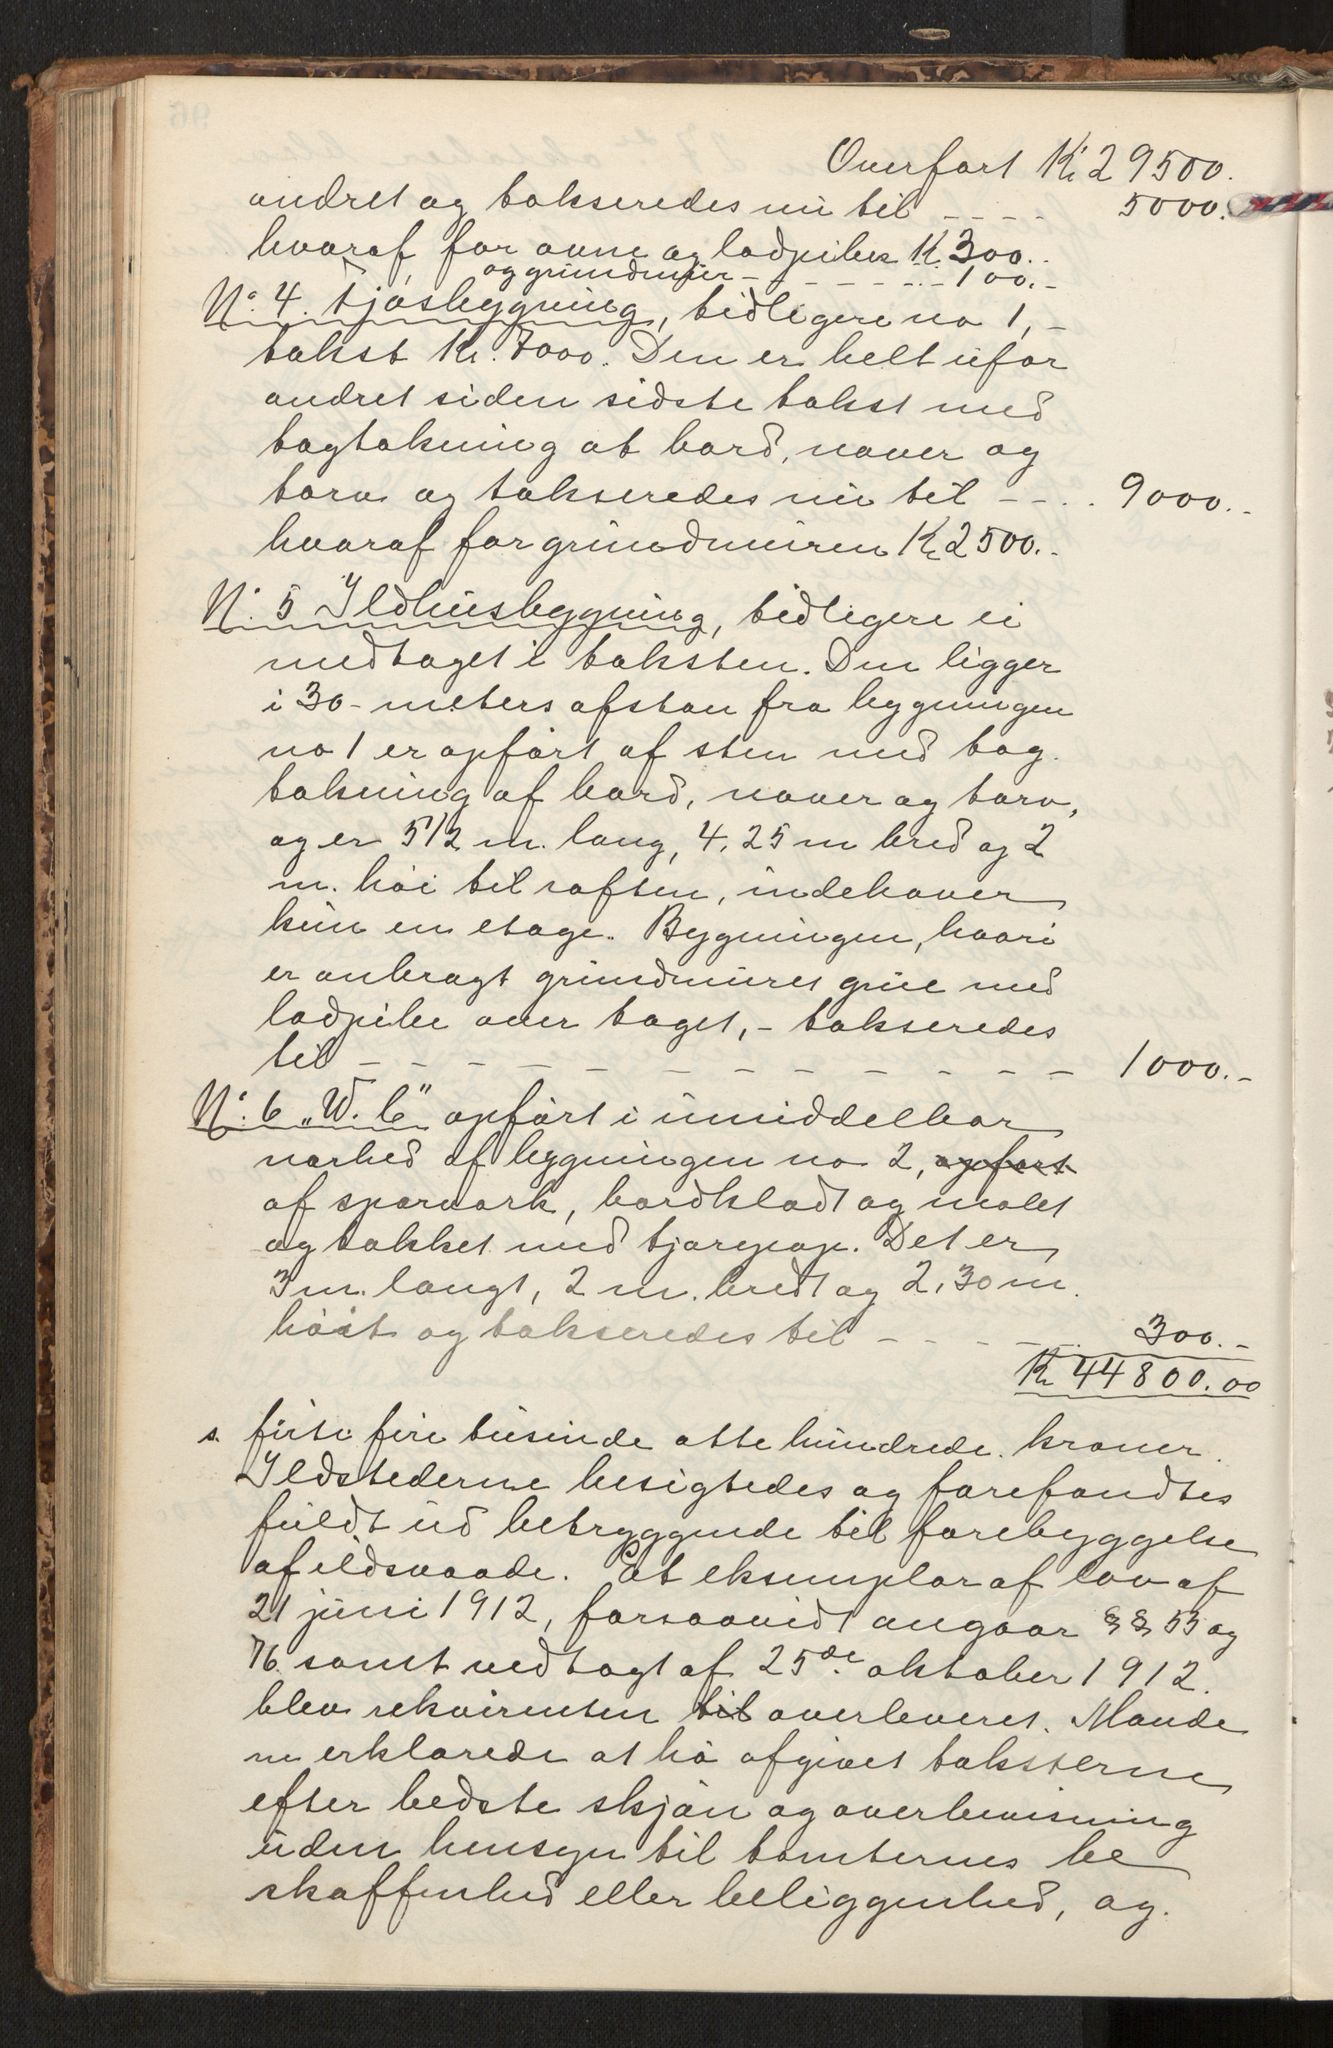 Overført Kr 29500.
andret og takseredes nu til - - - - 5000.
hvoraf for ovne og ladpiber Kr. 300..
og grundmur - - - - - - 100.-
No. 4. Fjøsbygning, tidligere no 1, -
takst Kr. 7000. Den er helt ufor
andret siden sidste takst med
tagtakning at bord, naver og
torv og takseredes nu til - - . . 9000.-
hvoraf for grundmuren Kr 2500.-
No. 5 Ildhusbygning, tidligere ei
medtaget i taksten. Den ligger
i 30 - meters afstan fra bygningen
no 1 er opført af sten med tag
takning af bord, naver og torv,
og er 5 1/2 m. lang, 4,25 m bred og 2
m. høi til raften, indehaver
kun en etage. Bygningen, hvori
er anbragt grundmuret grue med
ladpibe over taget, - takseredes
til - - - - - - - - - - - - 1000.-
No. 6 „W. C" opført i umiddelbar
narhed af bygningen no 2, opført
af sparvark, bordkladt og malet
og takket med tjarepap. Det er
3 m. langt, 2 m. bredt og 2,30 m.
høit og takseredes til - - - - - 300.-
Kr 44800.00
s. firti fire tusinde otte hundrede kroner.
Ildstederne besigtedes og forefandtes
fuldt ud betryggende til forebyggelse
af ildsvaade. Et eksemplar af lov af
21 juni 1912, forsaavidt angaar §§ 55 og
76 samt vedtagt af 25de oktober 1912.
blev rekvirenten til overleveret. Mænde
ne erklarede at ha afgivet taksterne
efter bedste skjøn og overbevisning
uden hensyn til tomternes be
skaffenhed eller beliggenhed, og.